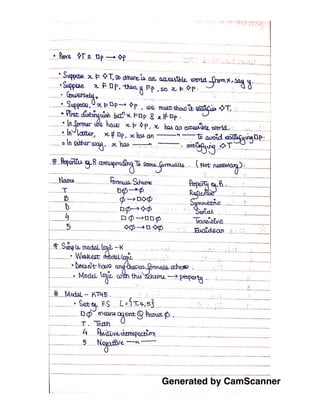 • Prove ◇T ≡ □p → ◇p
• Suppose x ⊩ ◇T, so there is an accessible world from x, say y.
• Suppose x ⊩ □p, then y ⊩ p, so x ⊩ ◇p.
• Conversely,
• Suppose, x ⊩ □p → ◇p, we must show it satisfies ◇T.
• First distinguish betⁿ x ⊩ □p & x ⊮ □p.
• In former we have x ⊩ ◇p, x has an accessible world.
• In latter, x ⊮ □p, x has an —〃— to avoid satisfying □p.
• In either way, x has —〃— satisfying ◇T.
# Properties of R corresponding to some formulas. (Not necessary)
Name Formula Scheme Property of R.
T □ϕ → ϕ Reflexive
B ϕ → □◇ϕ Symmetric
D □ϕ → ◇ϕ Serial
4 □ϕ → □□ϕ Transitive
5 ◇ϕ → □◇ϕ Euclidean
# Simple modal logic - K
• Weakest modal logic
• Doesn't have any chosen formula scheme.
• Modal logic with this scheme → property.
# Modal - KT45.
• Set of FS L = {T, 4, 5}
□ϕ means agent Q knows ϕ.
T. Truth
4 Positive introspection
5 Negative —〃—
Generated by CamScanner